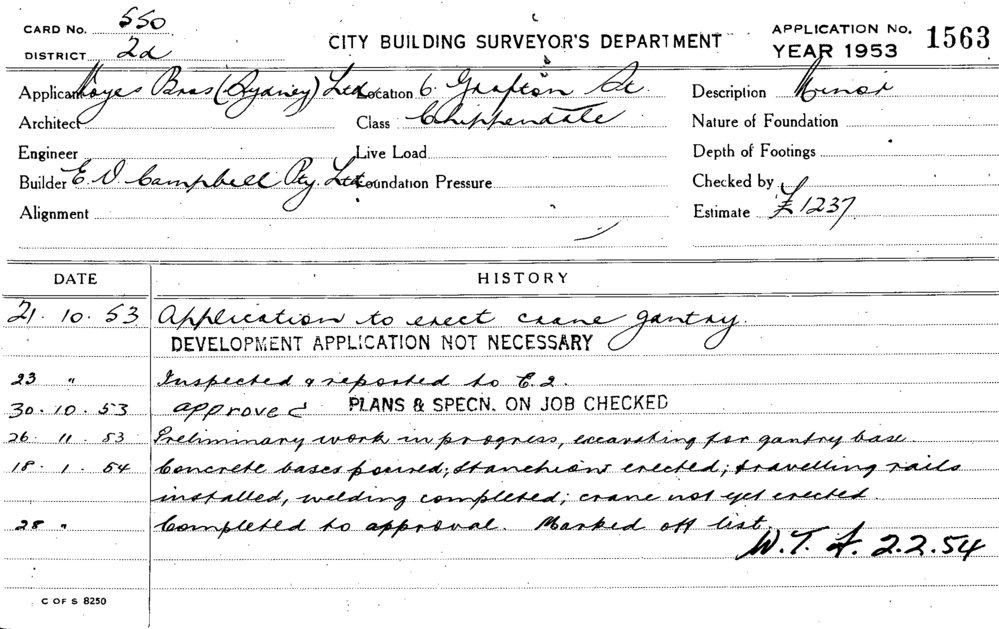 CARD No. 550
DISTRICT 2d
CITY BUILDING SURVEYOR'S DEPARTMENT
APPLICATION No. 1563
YEAR 1953
Applicant Noyes Bros (Sydney) Ltd Location 6. Grafton St. Description Minor
Architect Class Chippendale Nature of Foundation
Engineer Live Load Depth of Footings
Builder E. V. Campbell Pty. Ltd. Foundation Pressure Checked by
Alignment Estimate £1237
DATE HISTORY
21. 10. 53 Application to erect crane gantry.
DEVELOPMENT APPLICATION NOT NECESSARY
23 " Inspected & reported to E.2.
30. 10. 53 approved PLANS & SPECN. ON JOB CHECKED
26. 11. 53 Preliminary work in progress, excavating for gantry base.
18. 1. 54 Concrete bases poured; stanchions erected; travelling rails
installed, welding completed; crane not yet erected.
28 " Completed to approval. Marked off list.
W. T. 2.2.54
C OF S 8250